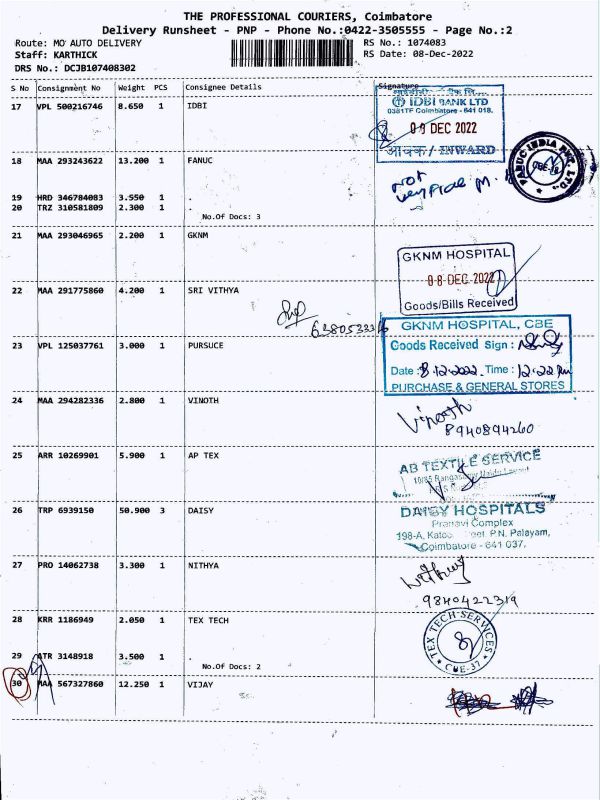 THE PROFESSIONAL COURIERS, Coimbatore
Delivery Runsheet - PNP - Phone No.:0422-3505555 - Page No.:2
Route: MO AUTO DELIVERY
RS No.: 1074083
Staff: KARTHICK
RS Date: 08-Dec-2022
DRS No.: DCJB107408302
S No Consignment No Weight PCS Consignee Details Signature
17 VPL 500216746 8.650 1 IDBI
IDBI BANK LTD
Coimbatore - 641 018.
09 DEC 2022
आवक / INWARD
18 MAA 293243622 13.200 1 FANUC
FANUC INDIA PVT. LTD.
Not
19 HRD 346784083 3.550 1 .
20 TRZ 310581809 2.300 1 .
No.Of Docs: 3
21 MAA 293046965 2.200 1 GKNM
GKNM HOSPITAL
08 DEC 2022
Goods/Bills Received
22 MAA 291775860 4.200 1 SRI VITHYA
GKNM HOSPITAL, CBE
Goods Received Sign :
Date : 8.12.2022. Time : 12.22 Pm
PURCHASE & GENERAL STORES
23 VPL 125037761 3.000 1 PURSUCE
24 MAA 294282336 2.800 1 VINOTH
Vinoth
8940894260
25 ARR 10269901 5.900 1 AP TEX
AB TEXTILE SERVICE
26 TRP 6939150 50.900 3 DAISY
DAISY HOSPITALS
Pranavi Complex
198-A, P.N. Palayam,
Coimbatore - 641 037.
27 PRO 14062738 3.300 1 NITHYA
9840422319
28 KRR 1186949 2.050 1 TEX TECH
TEX TECH SERVICES
CBE-37
29 ATR 3148918 3.500 1 .
No.Of Docs: 2
30 MAA 567327860 12.250 1 VIJAY